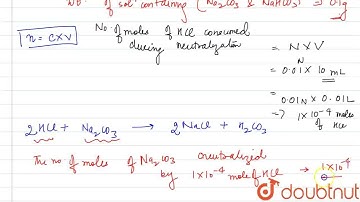 Wt. of solⁿ containing (Na2CO3 & NaHCO3) = 0.1g
n = C×V
No. of moles of HCl consumed
during neutralization
= N×V
= 0.01 N × 10 mL
= 0.01 N × 0.01 L
=> 1×10⁻⁴ moles
of HCl
2HCl + Na2CO3 → 2NaCl + H2CO3
The no. of moles of Na2CO3 neutralized
by 1×10⁻⁴ mole of HCl → 1×10⁻⁴
doubtnut